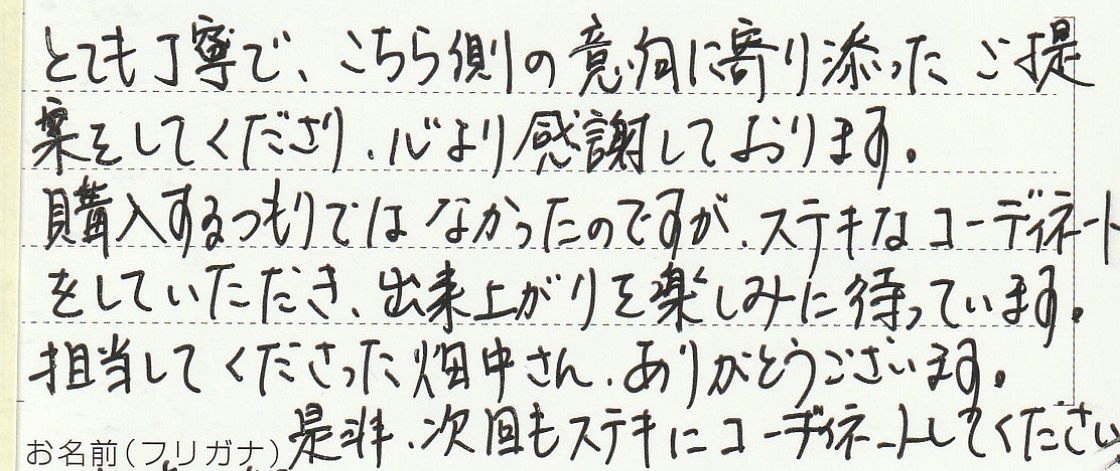 とても丁寧で、こちら側の意向に寄り添ったご提
案をしてくださり、心より感謝しております。
購入するつもりではなかったのですが、ステキなコーディネート
をしていただき、出来上がりを楽しみに待っています。
担当してくださった畑中さん、ありがとうございます。
是非、次回もステキにコーディネートしてくださ
お名前(フリガナ)